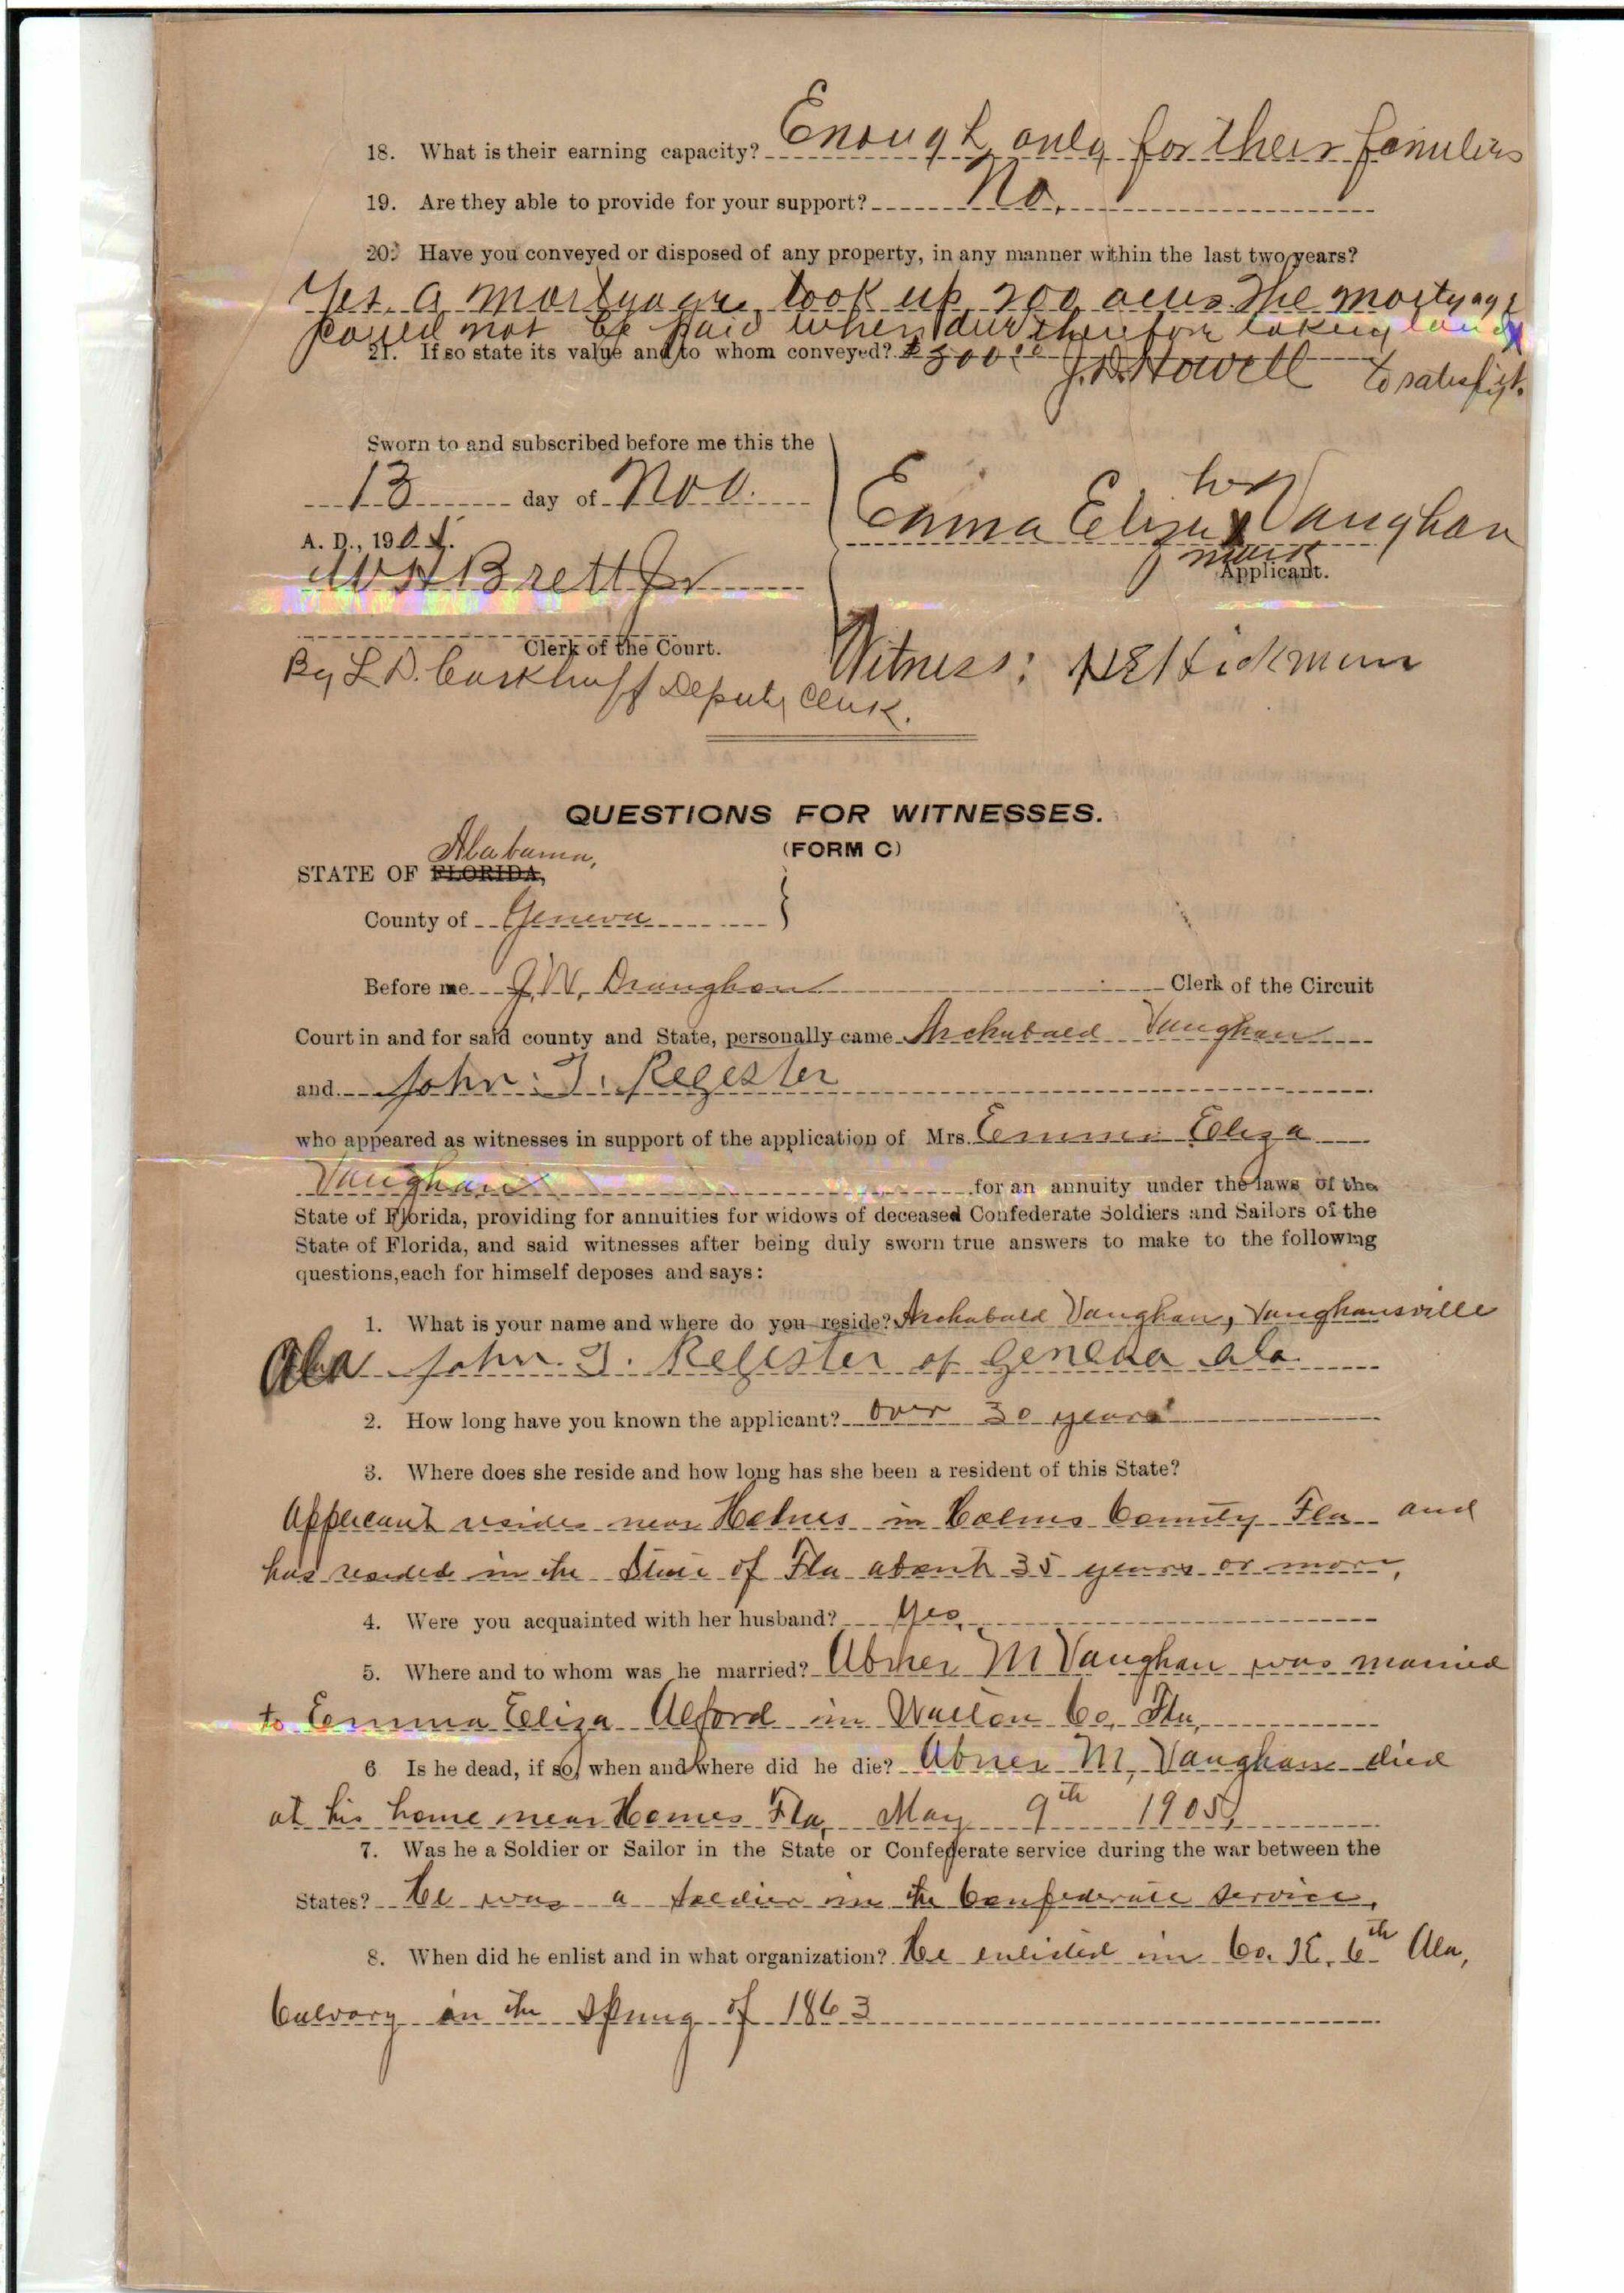 18. What is their earning capacity? Enough only for their families
19. Are they able to provide for your support? No.
20. Have you conveyed or disposed of any property, in any manner within the last two years?
Yes. a mortgage took up 200 acres The mortgage
could not be paid when due therefore taking land
21. If so state its value and to whom conveyed? $300.00 J.D. Howell to satisfy it.
Sworn to and subscribed before me this the
13 day of Nov.
A. D., 190
her
Emma Eliza X Vaughan
mark
Applicant.
W H Brett Jr
Clerk of the Court.
By L D. Deputy Clerk.
Witness: Hickman
QUESTIONS FOR WITNESSES.
(FORM C)
Alabama,
STATE OF FLORIDA,
County of Geneva
Before me J. W. Draughon Clerk of the Circuit
Court in and for said county and State, personally came Archabald Vaughan
and John. T. Regester
who appeared as witnesses in support of the application of Mrs. Emma Eliza
Vaughan for an annuity under the laws of the
State of Florida, providing for annuities for widows of deceased Confederate Soldiers and Sailors of the
State of Florida, and said witnesses after being duly sworn true answers to make to the following
questions, each for himself deposes and says:
1. What is your name and where do you reside? Archabald Vaughan, Vaughansville
Ala John. T. Regester of Geneva Ala.
2. How long have you known the applicant? over 30 years
3. Where does she reside and how long has she been a resident of this State?
Applicant resides near Holmes in Holmes County Fla and
has resided in the State of Fla about 35 years or more,
4. Were you acquainted with her husband? Yes.
5. Where and to whom was he married? Abner M Vaughan was married
to Emma Eliza Alford in Walton Co, Fla,
6 Is he dead, if so, when and where did he die? Abner M, Vaughan died
at his home near Homes Fla, May 9th 1905,
7. Was he a Soldier or Sailor in the State or Confederate service during the war between the
States? He was a soldier in the Confederate service,
8. When did he enlist and in what organization? He enlisted in Co. K. 6th Ala,
Calvary in the spring of 1863